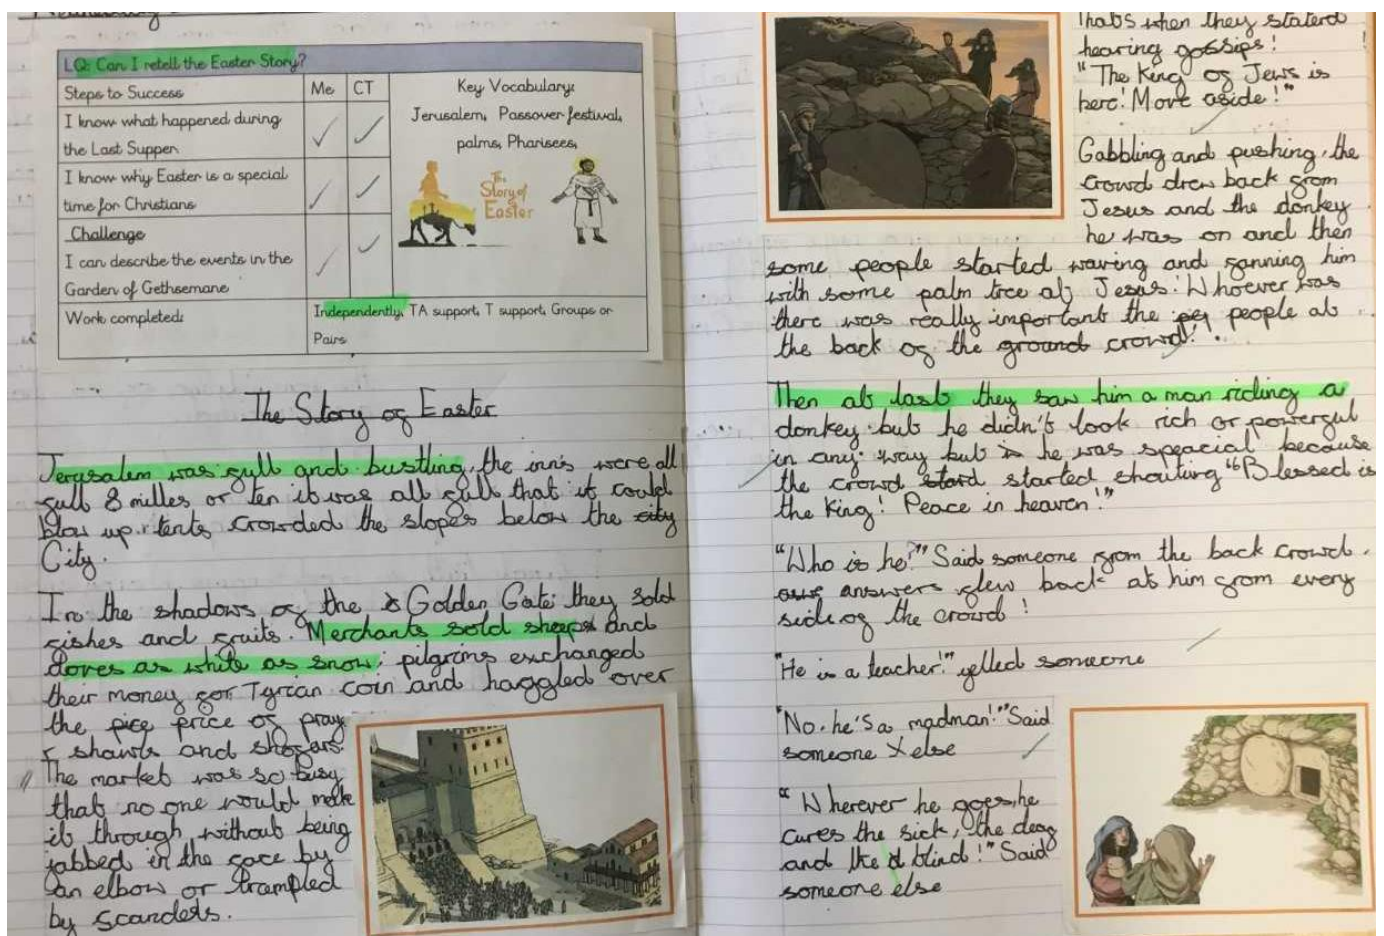 LQ: Can I retell the Easter Story?
Steps to Success
Me
CT
I know what happened during
the Last Supper.
I know why Easter is a special
time for Christians
Challenge
I can describe the events in the
Garden of Gethsemane
Key Vocabulary:
Jerusalem, Passover festival,
palms, Pharisees,
The
Story of
Easter
Work completed:
Independently, TA support, T support, Groups or
Pairs
The Story of Easter
Jerusalem was full and bustling, the inns were all
full 8 milles or ten it was all full that it could
blow up. tents crowded the slopes below the city
City.
In the shadows of the Golden Gate: they sold
fishes and fruits. Merchants sold sheeps and
doves as white as snow; pilgrims exchanged
their money for Tyrian coin and haggled over
the pice price of pray
r shawls and shofars.
The market was so busy
that no one would make
it through without being
jabbed in the face by
an elbow or trampled
by scandels.
Thats when they staterd
hearing gossips!
"The King of Jews is
here! Move aside!"
Gabbling and pushing, the
crowd drew back from
Jesus and the donkey
he was on and then
some people started waving and fanning him
with some palm tree at Jesus. Whoever was
there was really important the people at
the back of the ground crowd!
Then at last they saw him a man riding a
donkey but he didn't look rich or powerful
in any way but he was speacial because
the crowd stard started shouting "Blessed is
the King! Peace in heaven!"
"Who is he?" Said someone from the back crowd.
answers flew back at him from every
side of the crowd!
"He is a teacher!" yelled someone
"No, he's a madman!" Said
someone else
"Wherever he goes, he
cures the sick, the deaf
and the blind!" Said
someone else